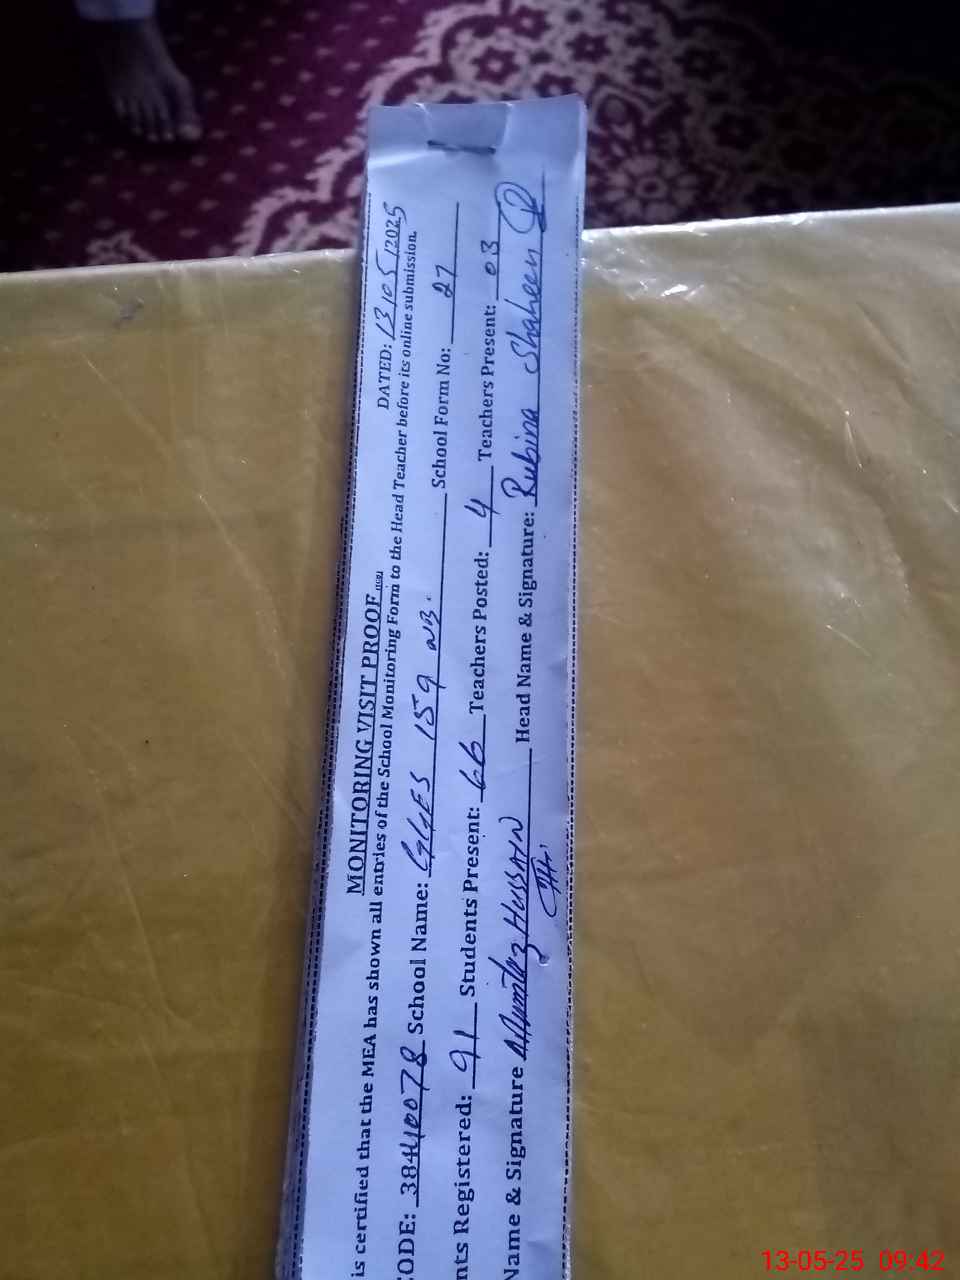 MONITORING VISIT PROOF
DATED: 13/05/2025
is certified that the MEA has shown all entries of the School Monitoring Form to the Head Teacher before its online submission.
CODE: 38410078 School Name: GGES 159 NB. School Form No: 27
nts Registered: 91 Students Present: 66 Teachers Posted: 4 Teachers Present: 03
Name & Signature Mumtaz Hussain Head Name & Signature: Rubina Shaheen
13-05-25 09:42